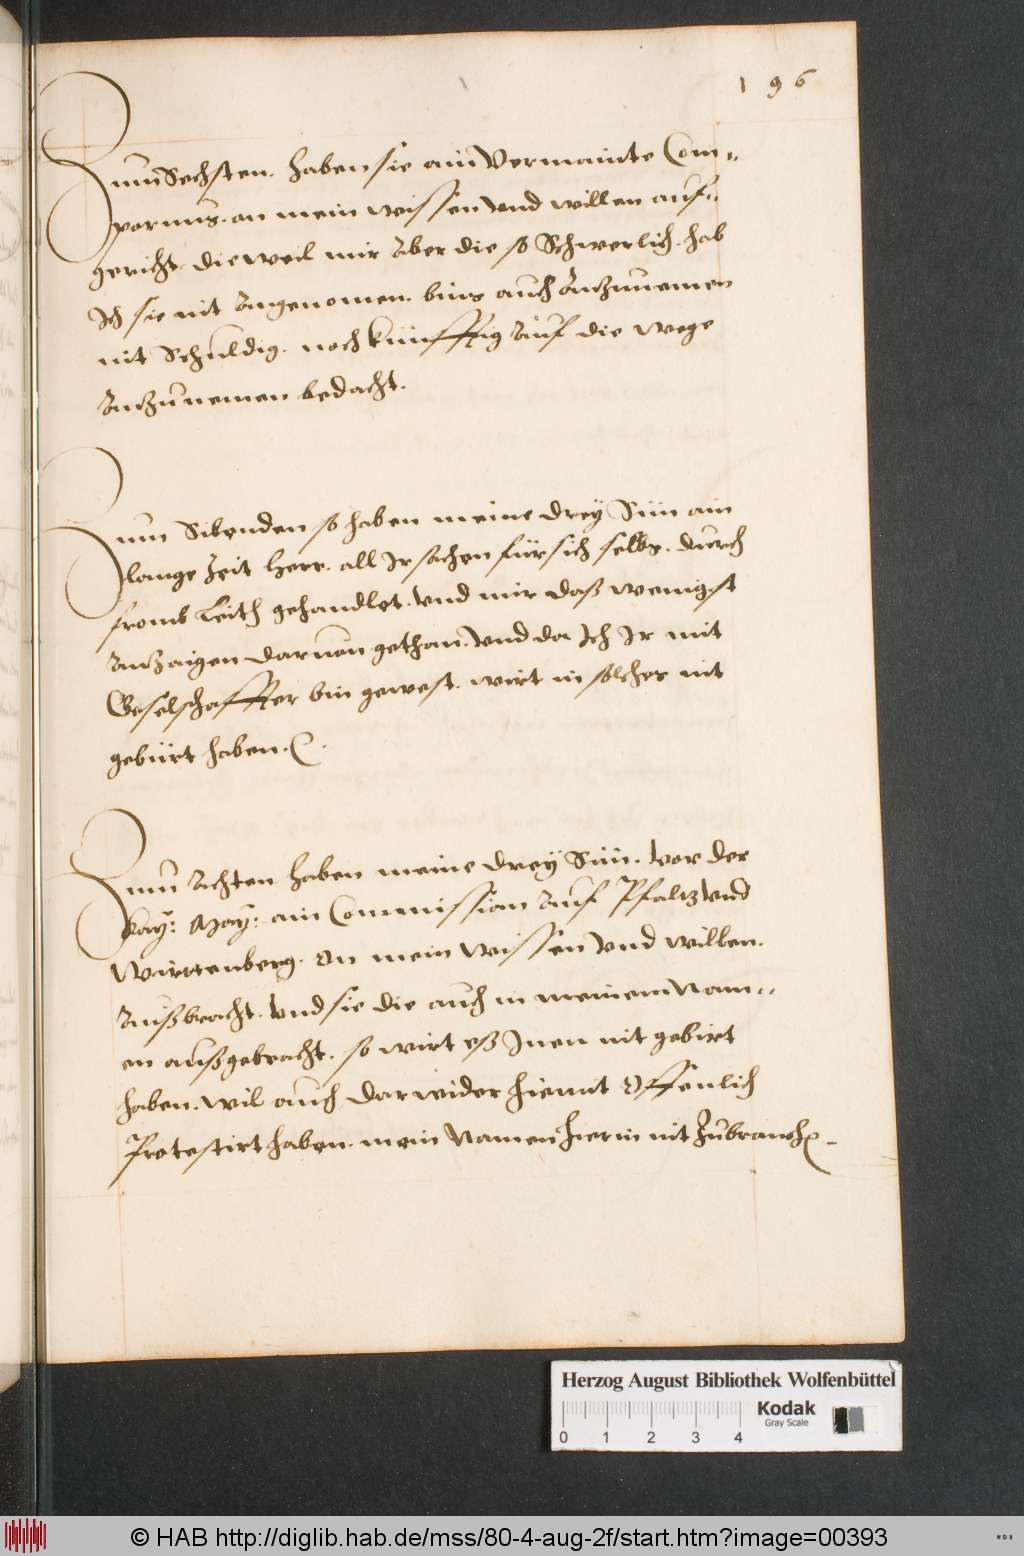 196
Zum Sechsten. haben sie ain Vermainte Com¬
pormus. on mein wissen vnd willen auf¬
gericht die weil mir Aber die so Schwerlich. hab
Ich sie nit Angenomen. bins auch Anzunemen
nit Schuldig. noch künfftig Auf die wege
Anzunemen bedacht.
Zum Sibenden so haben meine drey Sün ain
lange Zeit herr. all Ir sachen für sich selbs. durch
fromb Leith gehandlet. Vnd mir daß wenigst
Anzaigen daruon gethan. Vnd da Ich Ir mit
Geselschaffter bin gewest. wirt in solches nit
gebürt haben.
Zum Achten haben meine drey Sün. Vor der
Kay: May: ain Commission Auf Pfaltz Vnd
Wurttenberg. On mein Wissen Vnd willen.
Außbracht. Vnd sie die auch in meinem Nam¬
en außgebracht. so wirt eß Inen nit gebirt
haben. wil auch darwider hiemit Offenlich
Protestirt haben. mein Namen hierin nit Zubrauchen
Herzog August Bibliothek Wolfenbüttel
Kodak
Gray Scale
0 1 2 3 4
© HAB http://diglib.hab.de/mss/80-4-aug-2f/start.htm?image=00393